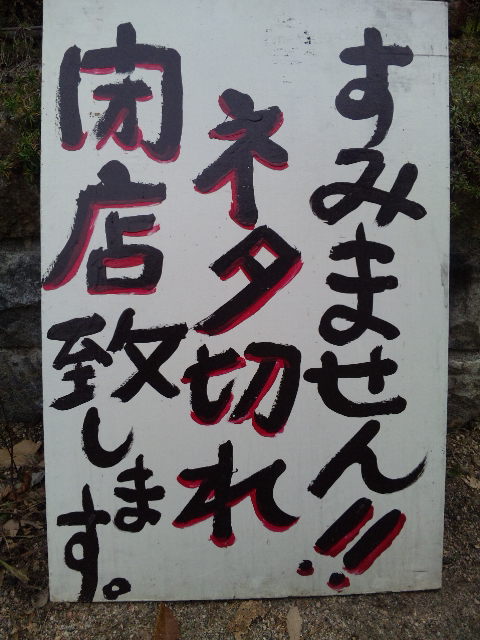 すみません!!
ネタ切れ
閉店致します。